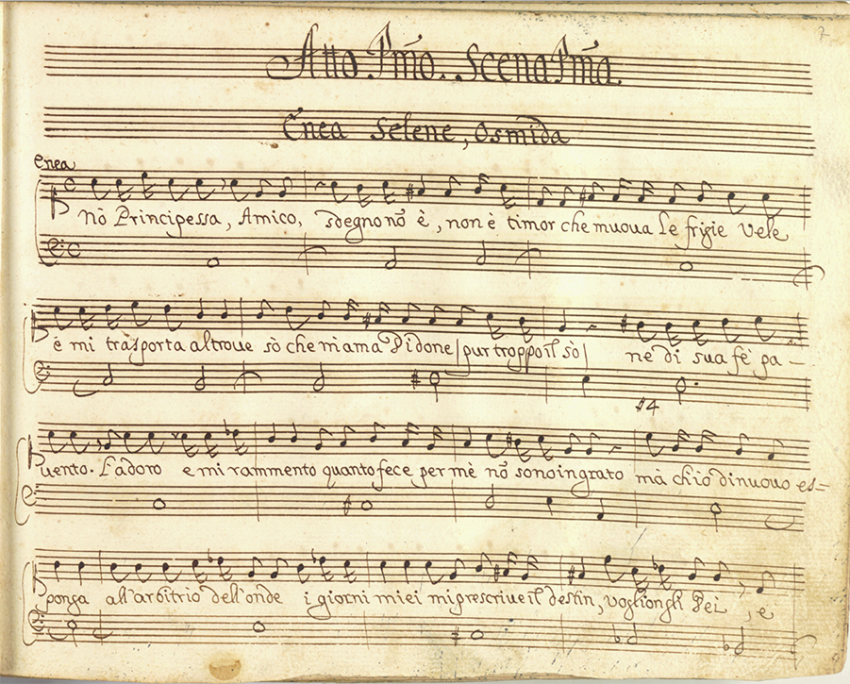 Atto Pmo. Scena Pma.
Enea Selene, Osmida
Enea
Nò Principessa, Amico, sdegno nõ è, non è timor che muoua le frigie Vele
è mi trasporta altroue sò che m'ama Didone | pur troppo il sò | ne di sua fè pa -
♯4
uento. L'adoro e mi rammento quanto fece per mè nõ sono ingrato mà ch'io di nuouo es=
ponga all'arbitrio dell'onde i giorni miei mi prescriue il destin, voglion gli Dei, e